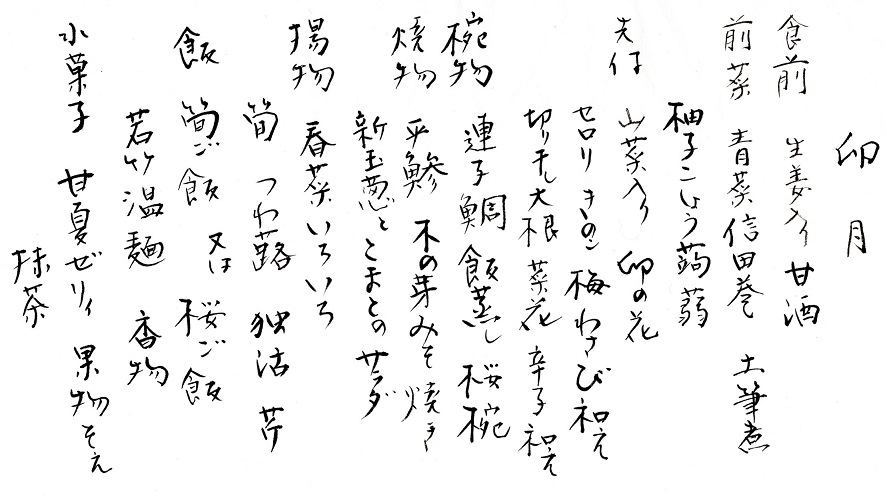 卯月
食前 生姜入り甘酒
前菜 青菜信田巻 土筆煮
柚子こしょう蒟蒻
先付 山菜入り 卯の花
セロリ きのこ 梅わさび和え
切り干し大根 菜花 辛子和え
椀物 連子鯛 飯蒸し 桜椀
焼物 平鰺 木の芽みそ焼き
新玉葱とトマトのサラダ
揚物 春菜いろいろ
筍 つわ蕗 独活 芹
飯 筍ご飯 又は 桜ご飯
若竹温麺 香物
水菓子 甘夏ゼリィ 果物そえ
抹茶